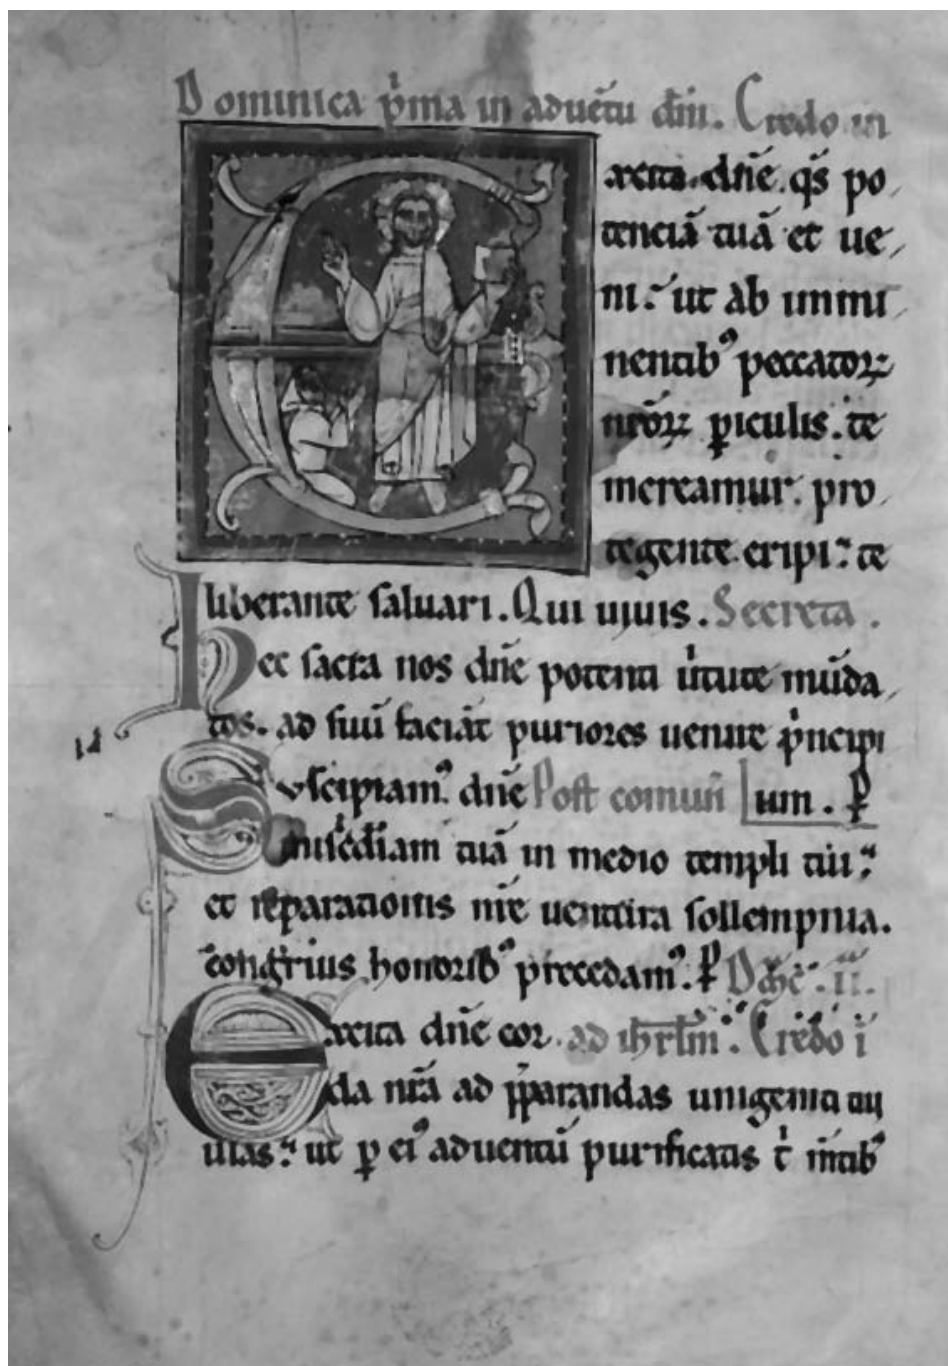 Dominica p'ma in aduētu dn̄i. Credo in
Excita dn̄e. qs̄ po
tenciā tuā et ue
ni: ut ab immi
nentib⁹ peccatoꝝ
nr̄oꝝ ꝑiculis. te
mereamur. pro
tegente. eripi: te
liberante saluari. Qui uiuis. Secreta.
Hec sacra nos dn̄e potenti u'tute mūda
tos. ad suū faciāt puriores uenire p'ncipi
Suscipiam⁹ dn̄e Post comun̄ um. ꝑ
mis'cd̄iam tuā in medio templi tui:
et reparationis nr̄e uentura sollempnia.
congruis honorib⁹ precedam⁹. ꝑ Dn̄ic̄. ii.
Excita dn̄e cor ad ih̄rlm̄. Credo ī
da nr̄a ad p̄parandas unigeniti tui
uias: ut ꝑ ei⁹ aduentū purificatis t' m̄tib⁹